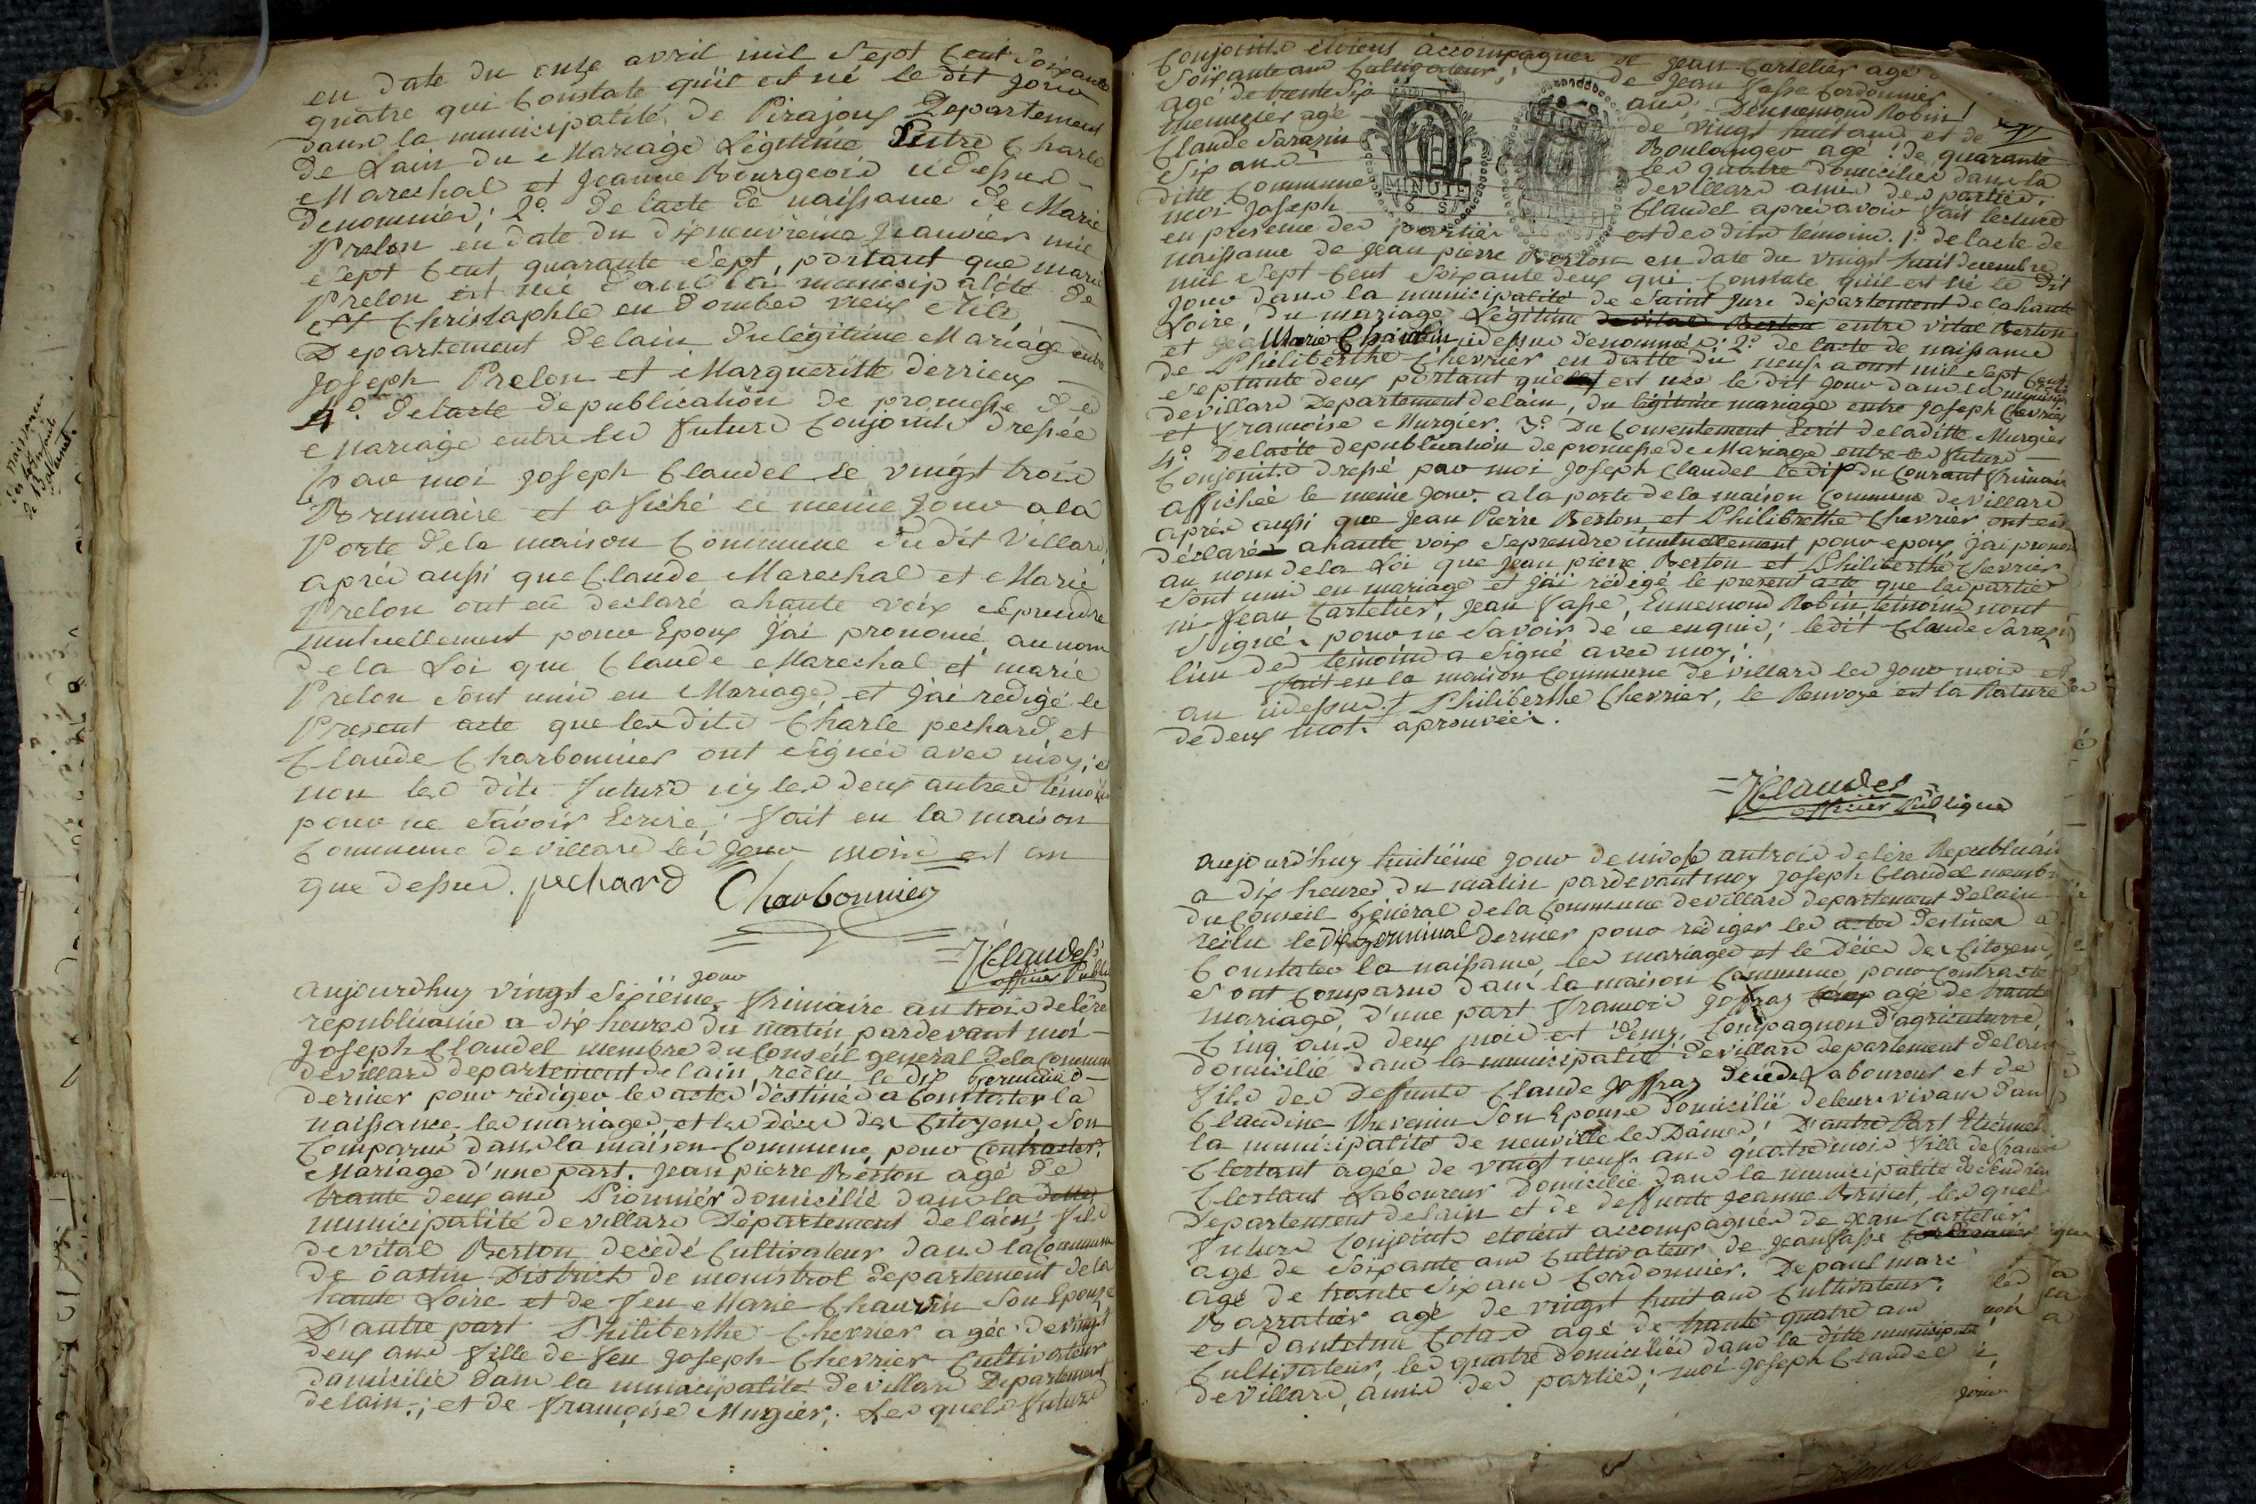 en date du onze avril mil Sept Cent Soixante
quatre qui Constate quil est né le dit Jour
dans la municipalité de Pirajoux Departement
De Lain du Mariage Légitime Entre Charle
Marechal et Jeanne Bourgeois cidessus
denommés; 2° de lacte de naissance de Marie
Prelon en date du dixneuvième Janvier mil
Sept Cent quarante Sept, portant que marie
Prelon est née dans la municipalité de
St Christophle en Dombes
Departement delain du légitime Mariage entre
Joseph Prelon et Margueritte derrieux
4° delacte depublication de promesse de
Mariage entre les futurs Conjoints dressée
par moi Joseph Claudel le vingt trois
Brumaire et afiché le meme Jour ala
Porte dela maison Commune dudit Villard
après aussi que Claude Marechal et Marie
Prelon ont eû declaré ahaute voix seprendre
mutuellement pour Epoux J'ai prononcé au nom
de la Loi que Claude Marechal et marie
Prelon Sont unis en Mariage, et J'ai redigé le
Present acte que lesdits Charle pechard et
Claude Charbonnier ont signés avec moy; et
non les dits futurs ny les deux autres témoins
pour ne Savoir Ecrire; fait en la maison
Commune de villard les Jour mois et an
que dessus. pechard Charbonnier
JClaudel
officier Public
naissance
de
Bollanet.
jour
aujourdhuy vingt Sixième frimaire an trois delère
républicaine a dix heures du matin pardevant moi
Joseph Claudel membre du Conseil general dela Commune
devillard departement delain, reélu le dix Germinal
dernier pour rédiger les actes déstinés a Constater la
naissance les mariages et les décès des Citoyens, Sont
Comparus dans la maison Commune pour Contracter
Mariage d'une part. Jean pierre Berton agé de
trante deux ans Pionnier domicilié dans la ditte
municipalité de villard Département delain; fils
de vital Berton decédé Cultivateur dans la Commune
de District de monistrol departement de la
haute Loire et de feu Marie Chauvin Son Epouse
D'autre part Philiberthe Chevrier agée de vingt
deux ans fille de feu Joseph Chevrier Cultivateur
domicilié dans la municipalité de villard Departement
delain; et de françoise Murgier; Les quels futurs
Conjoints étoient accompagner de Jean Cartelier agé
Soixante ans Cultivateur; de Jean Vasse Cordonnier
agé de trente six ans, Dennemond Robin
menuisier agé de vingt huit ans et de
Claude Sarazin Boulanger agé de quarante
Six ans les quatre domiciliés dans la
ditte Commune devillard amis des parties.
moi Joseph Claudel après avoir fait lecture
en presence des parties et desdits temoins. 1° delacte de
MINUTE
naissance de Jean pierre Berton en date du vingt huit decembre
mil Sept Cent Soixante deux qui Constate quil est né le dit
Jour dans la municipalité de Saint Jure département de la haute
Loire, du mariage Légitime de vital Berton entre vital Berton
et Marie Chauvin cidessus denommés; 2° de lacte de naissance
de Philiberthe Chevrier en datte du neuf aoust mil Sept Cent
Septante deux portant quelle est née le dit Jour dans la municipalité
devillard Departement delain, du légitime mariage entre Joseph Chevrier
et françoise Murgier. 3° Du Consentement Ecrit deladitte Murgier
4° Delacte depublication de promesse de Mariage entre les futurs
Conjoints dressé par moi Joseph Claudel le dix du Courant frimaire
affichée le meme Jour. ala porte de la maison Commune de Villard
après aussi que Jean Pierre Berton et Philibrethe Chevrier ont eu
déclaré ahaute voix Seprendre mutuellement pour epoux j'ai prononcé
au nom dela Loi que Jean pierre Berton et Philiberthe Chevrier
Sont unis en mariage et j'ai rédegé le present acte que les parties
ni Jean Cartelier, Jean Vasse, Ennemond Robin témoins nont
Signé pour ne Savoir de ce enquis; ledit Claude Sarazin
l'un des témoins a Signé avec moy;
fait en la maison Commune de villard les Jour mois et
an cidessus. Philiberthe Chevrier, le Renvoye et la Rature
de deux mots aprouvées.
JClaudel
officier Publique
aujourd'huy huitième Jour denivose antrois delère Republicaine
a dix heures du matin pardevant moy Joseph Claudel membre
du Conseil Général dela Commune devillard departement delain
reélu le dix Germinal dernier pour rédiger les actes destinés a
Constater la naissance, les mariages et le Décès des Citoyens,
Sont Comparus dans la maison Commune, pour Contracter
mariage, d'une part françois Joffray agé de trante
Cinq ans deux mois et demy, Compagnon d'agriculture,
domicilié dans la municipalité devillard departement delain
fils des Deffunts Claude Joffray décédé Laboureur et de
Claudine thevenin Son Epouse domicilié deleurs vivans dans
la municipalité de neuville les Dames; D'autre Part Etiennette
Clertant agée de vingt neuf ans quatre mois fille de francois
Clertant Laboureur domicilié dans la municipalité de
Departement delain et de deffunte Jeanne Brunet, les quels
futurs Conjoints etoient accompagnés de Jean Cartelier
agé de Soixante ans Cultivateur, de Jean Vasse
agé de trante Six ans Cordonnier. De paul marc
Barratier agé de vingt huit ans Cultivateur;
et dantelme Colas agé de trante quatre ans
Cultivateur, les quatre domiciliés dans la ditte municipalité
devillard, amis des parties; moi Joseph Claudel